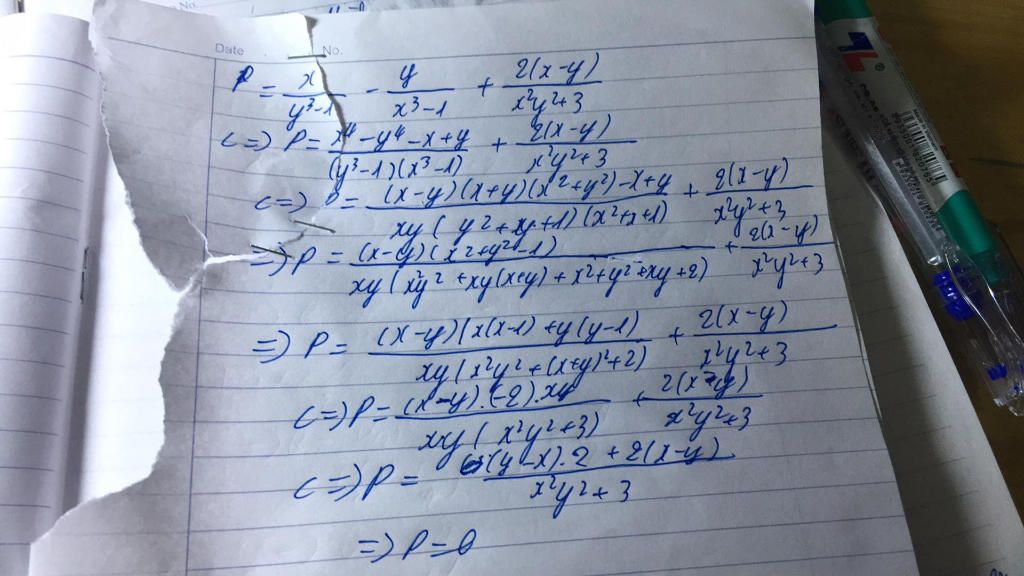 No.
Date No.
P = x/(y³-1) - y/(x³-1) + 2(x-y)/(x²y²+3)
<=> P = (x⁴-y⁴-x+y)/((y³-1)(x³-1)) + 2(x-y)/(x²y²+3)
<=> P = ((x-y)(x+y)(x²+y²)-x+y)/(xy(y²+xy+1)(x²+x+1)) + 2(x-y)/(x²y²+3)
=> P = ((x-y)(x²+y²-1))/(xy(x²y²+xy(x+y)+x²+y²+xy+2)) + 2(x-y)/(x²y²+3)
=> P = ((x-y)(x(x-1)+y(y-1))/(xy(x²y²+(x+y)²+2)) + 2(x-y)/(x²y²+3)
<=> P = ((x-y).(-2).xy)/(xy(x²y²+3)) + 2(x-y)/(x²y²+3)
<=> P = ((y-x).2+2(x-y))/(x²y²+3)
=> P = 0